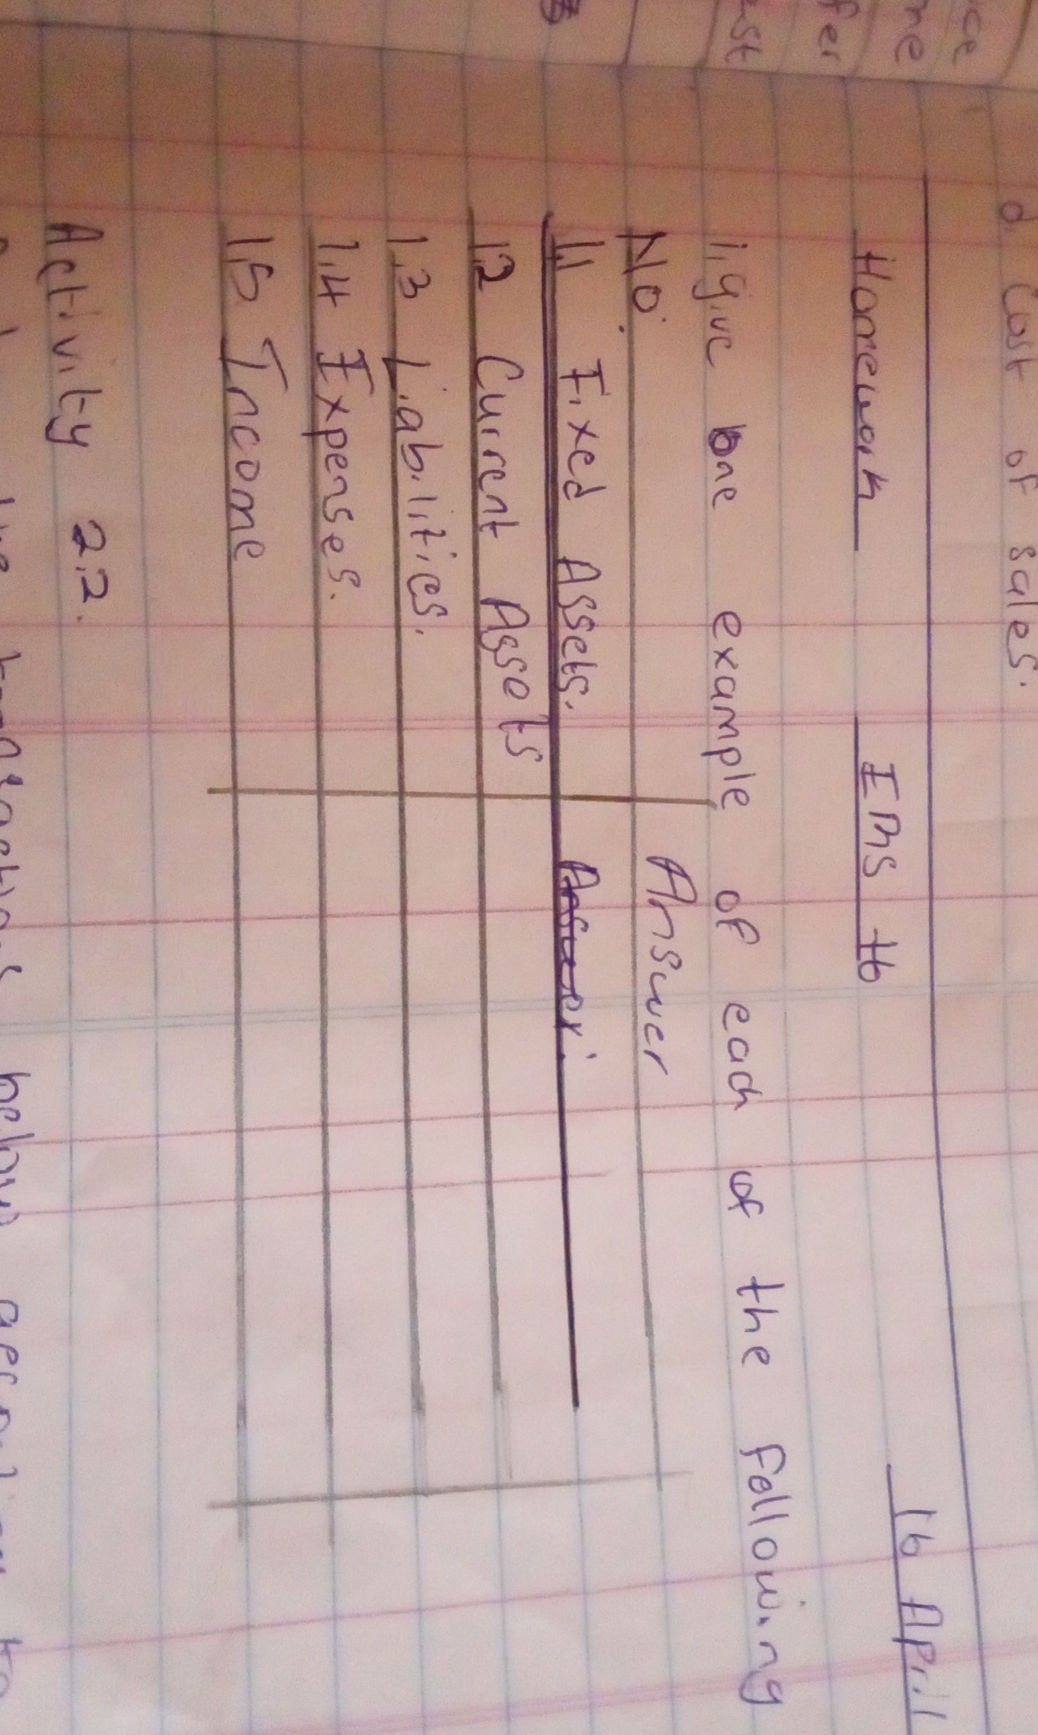 d. Cost of sales.
Homework EMS Hb 16 April
1. give one example of each of the following
No. Answer
1.1 Fixed Assets. Answer.
1.2 Current Assets
1.3 Liabilities.
1.4 Expenses.
1.5 Income
Activity 2.2.
below